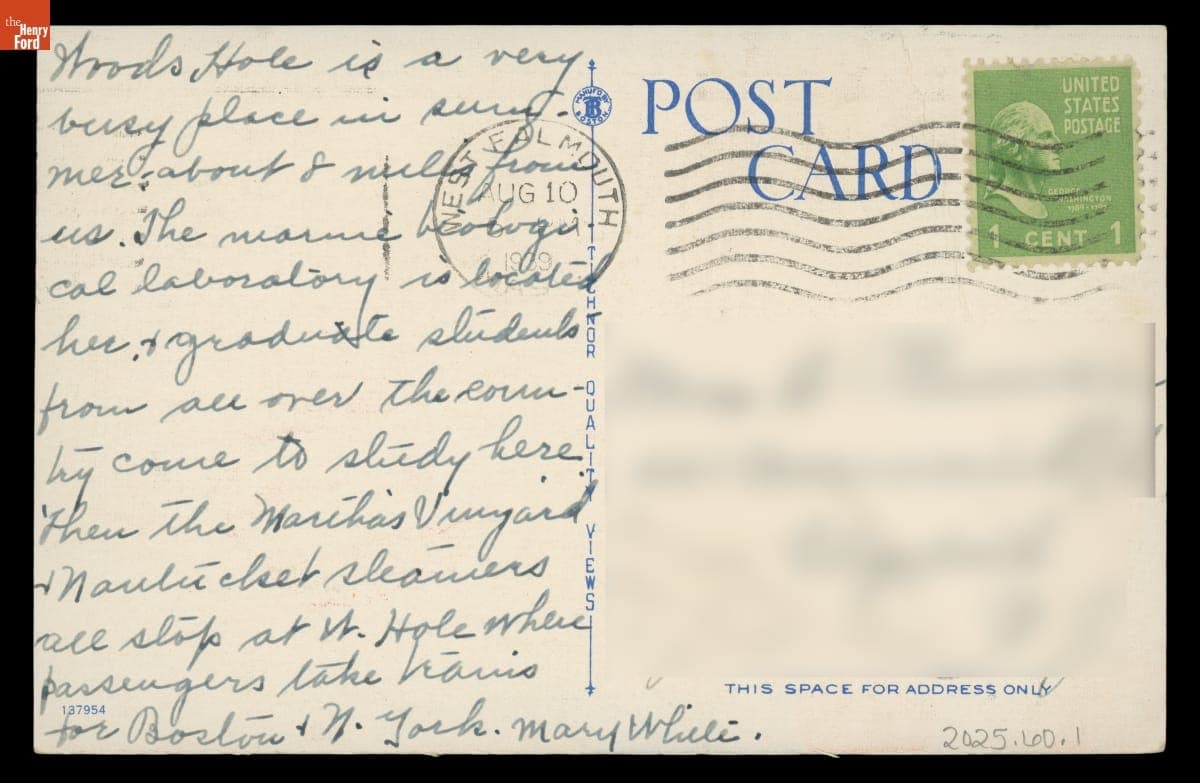 the
Henry
Ford
Woods Hole is a very
busy place in sum-
mer - about 8 miles from
us. The marine biologi-
cal laboratory is located
here, & graduate students
from all over the coun-
try come to study here.
Then the Martha's Vinyard
& Nantucket steamers
all stop at W. Hole where
passengers take trains
for Boston & N. York. Mary White.
137954
MANUF'D BY
TB
BOSTON
TICHNOR QUALITY VIEWS
WEST FALMOUTH
AUG 10
1939
POST
CARD
UNITED
STATES
POSTAGE
GEORGE
WASHINGTON
1 CENT 1
THIS SPACE FOR ADDRESS ONLY
2025.60.1